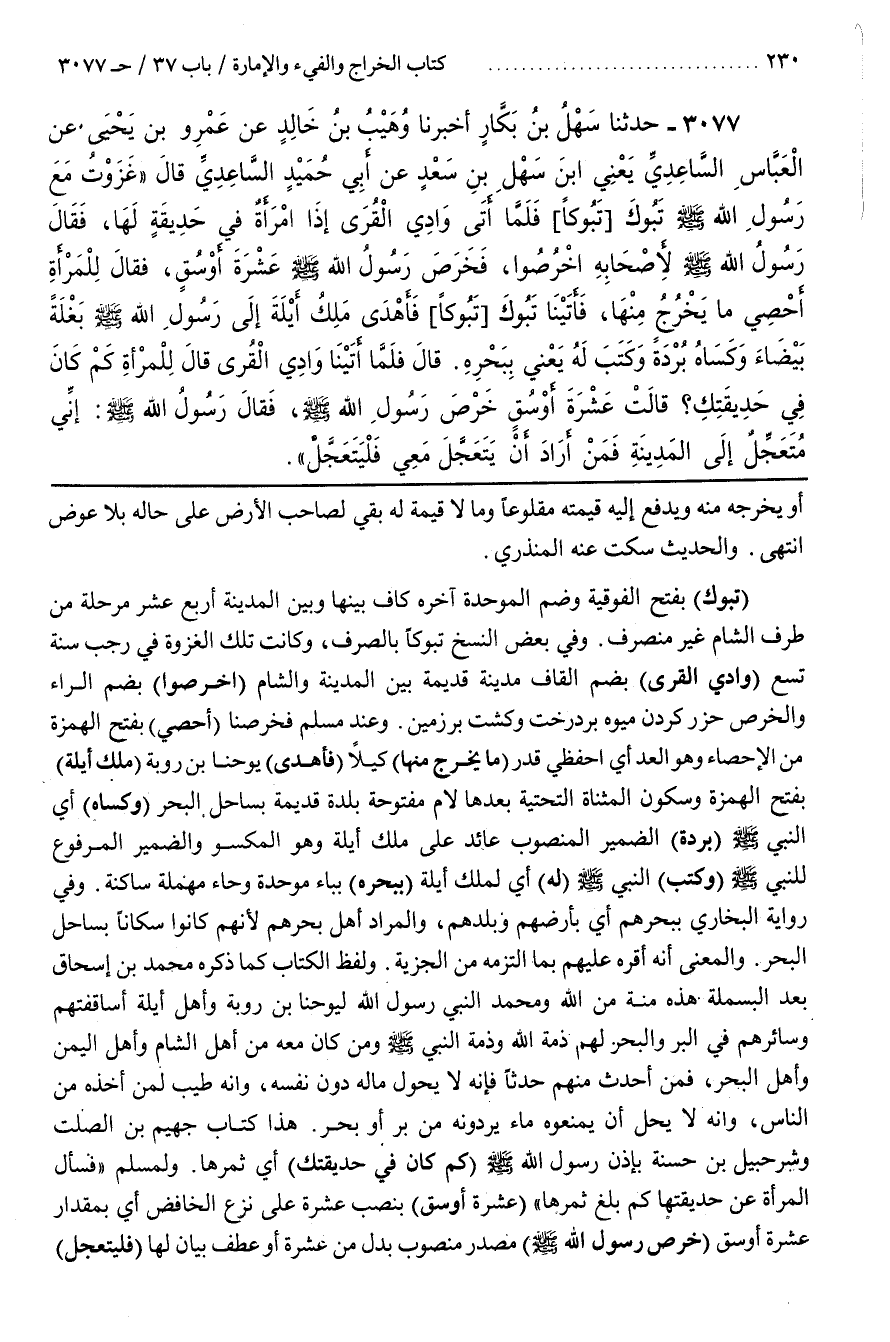 ٢٣٠ ................................ كتاب الخراج والفيء والإمارة / باب ٣٧ / حـ ٣٠٧٧
٣٠٧٧ ـ حدثنا سَهْلُ بنُ بَكَّارٍ أخبرنا وُهَيْبُ بنُ خَالِدٍ عن عَمْرِو بن يَحْيَى عن
الْعَبَّاسِ السَّاعِدِيِّ يَعْنِي ابنَ سَهْلِ بنِ سَعْدٍ عن أَبِي حُمَيْدٍ السَّاعِدِيِّ قالَ «غَزَوْتُ مَعَ
رَسُولِ الله ﷺ تَبُوكَ [تَبُوكاً] فَلَمَّا أَتَى وَادِي الْقُرَى إِذَا امْرَأَةٌ في حَدِيقَةٍ لَهَا، فَقَالَ
رَسُولُ الله ﷺ لِأَصْحَابِهِ اخْرُصُوا، فَخَرَصَ رَسُولُ الله ﷺ عَشْرَةَ أَوْسُقٍ، فقالَ لِلْمَرْأَةِ
أَحْصِي ما يَخْرُجُ مِنْهَا، فَأَتَيْنَا تَبُوكَ [تَبُوكاً] فَأَهْدَى مَلِكُ أَيْلَةَ إِلَى رَسُولِ الله ﷺ بَغْلَةً
بَيْضَاءَ وَكَسَاهُ بُرْدَةً وَكَتَبَ لَهُ يَعْني بِبَحْرِهِ. قالَ فلَمَّا أَتَيْنَا وَادِي الْقُرى قالَ لِلْمرْأةِ كَمْ كَانَ
فِي حَدِيقَتِكِ؟ قالَتْ عَشْرَةَ أَوْسُقٍ خَرْصَ رَسُولِ الله ﷺ، فَقالَ رَسُولُ الله ﷺ: إِنِّي
مُتَعَجِّلٌ إِلَى المَدِينَةِ فَمَنْ أَرَادَ أَنْ يَتَعَجَّلَ مَعِي فَلْيَتَعَجَّلْ».
أو يخرجه منه ويدفع إليه قيمته مقلوعاً وما لا قيمة له بقي لصاحب الأرض على حاله بلا عوض
انتهى. والحديث سكت عنه المنذري.
(تبوك) بفتح الفوقية وضم الموحدة آخره كاف بينها وبين المدينة أربع عشر مرحلة من
طرف الشام غير منصرف. وفي بعض النسخ تبوكاً بالصرف، وكانت تلك الغزوة في رجب سنة
تسع (وادي القرى) بضم القاف مدينة قديمة بين المدينة والشام (اخرصوا) بضم الراء
والخرص حزر كردن ميوه بردرخت وكشت برزمين. وعند مسلم فخرصنا (أحصي) بفتح الهمزة
من الإحصاء وهو العد أي احفظي قدر (ما يخرج منها) كيلاً (فأهدى) يوحنا بن روبة (ملك أيلة)
بفتح الهمزة وسكون المثناة التحتية بعدها لام مفتوحة بلدة قديمة بساحل البحر (وكساه) أي
النبي ﷺ (بردة) الضمير المنصوب عائد على ملك أيلة وهو المكسو والضمير المرفوع
للنبي ﷺ (وكتب) النبي ﷺ (له) أي لملك أيلة (ببحره) بباء موحدة وحاء مهملة ساكنة. وفي
رواية البخاري ببحرهم أي بأرضهم وبلدهم، والمراد أهل بحرهم لأنهم كانوا سكاناً بساحل
البحر. والمعنى أنه أقره عليهم بما التزمه من الجزية. ولفظ الكتاب كما ذكره محمد بن إسحاق
بعد البسملة هذه منة من الله ومحمد النبي رسول الله ليوحنا بن روبة وأهل أيلة أساقفتهم
وسائرهم في البر والبحر لهم ذمة الله وذمة النبي ﷺ ومن كان معه من أهل الشام وأهل اليمن
وأهل البحر، فمن أحدث منهم حدثاً فإنه لا يحول ماله دون نفسه، وانه طيب لمن أخذه من
الناس، وانه لا يحل أن يمنعوه ماء يردونه من بر أو بحر. هذا كتاب جهيم بن الصلت
وشرحبيل بن حسنة بإذن رسول الله ﷺ (كم كان في حديقتك) أي ثمرها. ولمسلم «فسأل
المرأة عن حديقتها كم بلغ ثمرها» (عشرة أوسق) بنصب عشرة على نزع الخافض أي بمقدار
عشرة أوسق (خرص رسول الله ﷺ) مصدر منصوب بدل من عشرة أو عطف بيان لها (فليتعجل)